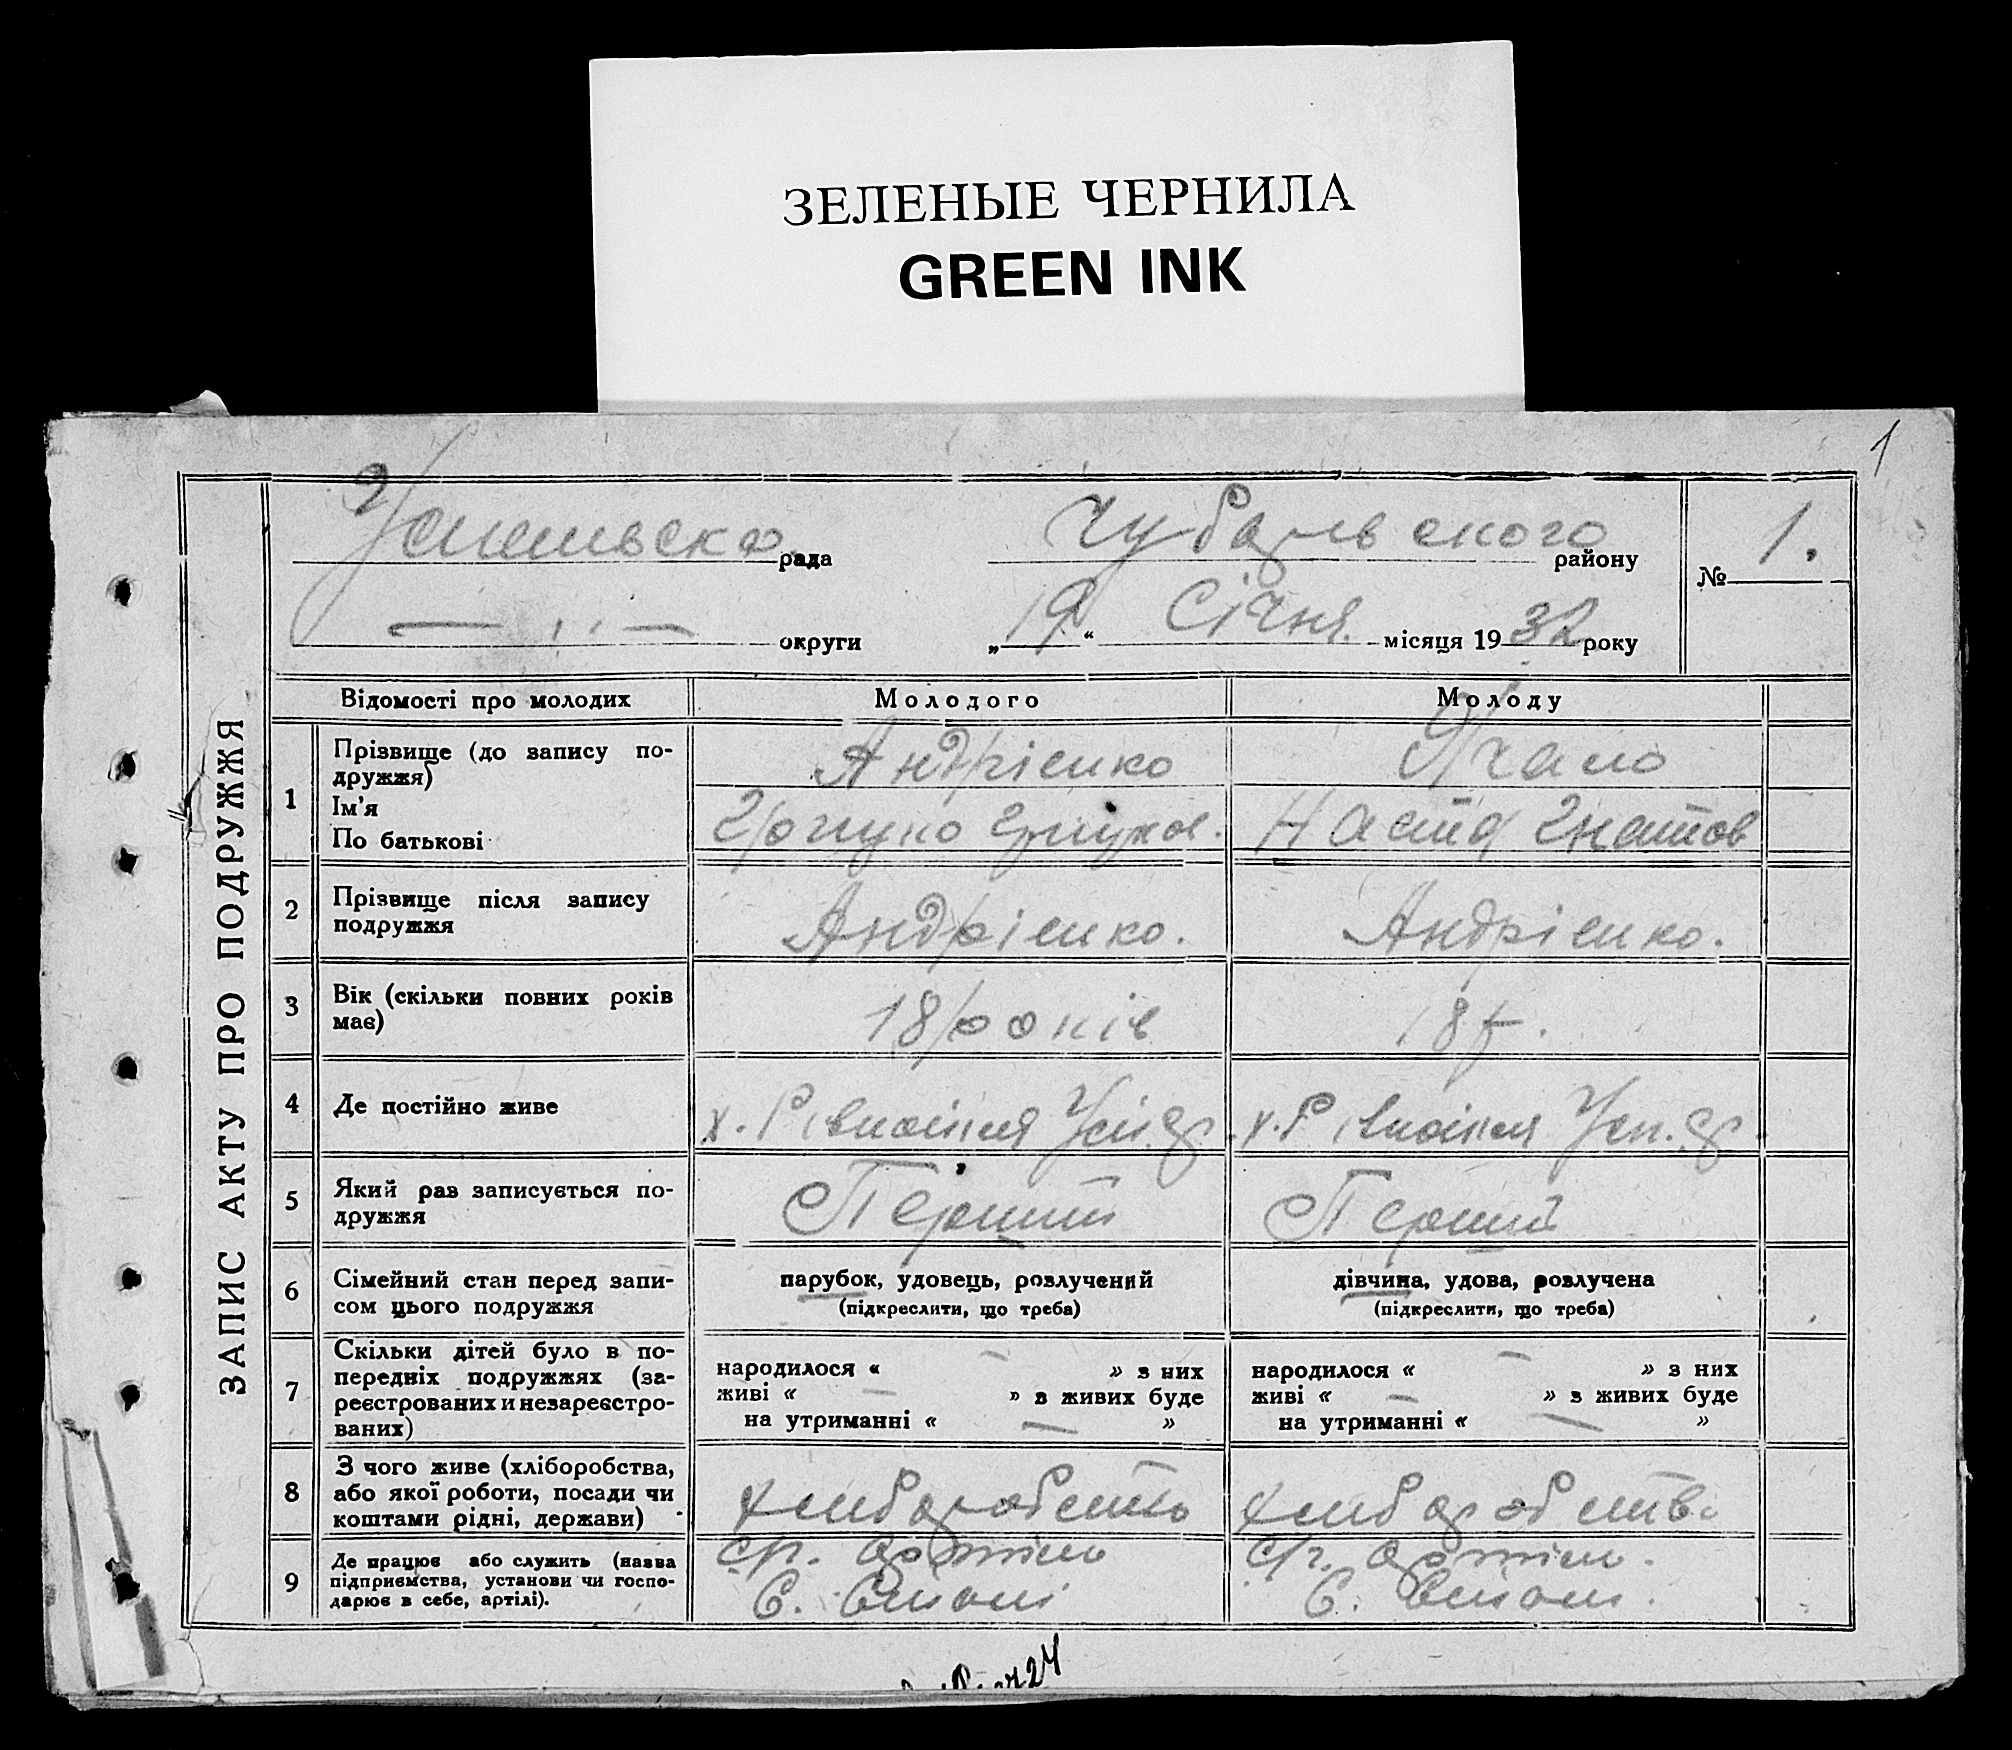 ЗЕЛЕНЫЕ ЧЕРНИЛА
GREEN INK
1
ЗАПИС АКТУ ПРО ПОДРУЖЖЯ
рада
району
№ 1.
округи
„19“ Січня місяця 1932 року
Відомості про молодих
Молодого
Молоду
1
Прізвище (до запису по-
дружжя)
Ім'я
По батькові
Андрієнко
Настя Гнатов
2
Прізвище після запису
подружжя
Андрієнко.
Андрієнко.
3
Вік (скільки повних років
має)
18 років
18 р.
4
Де постійно живе
х. Рівнопілля Усп.
х. Рівнопілля Усп.
5
Який раз записується по-
дружжя
Перший
Перший
6
Сімейний стан перед запи-
сом цього подружжя
парубок, удовець, розлучений
(підкреслити, що треба)
дівчина, удова, розлучена
(підкреслити, що треба)
7
Скільки дітей було в по-
передніх подружжях (за-
реєстрованих и незареєстро-
ваних)
народилося « — » з них
живі « — » з живих буде
на утриманні « — »
народилося « — » з них
живі « — » з живих буде
на утриманні « — »
8
З чого живе (хліборобства,
або якої роботи, посади чи
коштами рідні, держави)
хліборобство
хліборобств.
9
Де працює або служить (назва
підприємства, установи чи госпо-
дарює в себе, артілі).
с/г. артіль
с/г. артіль.